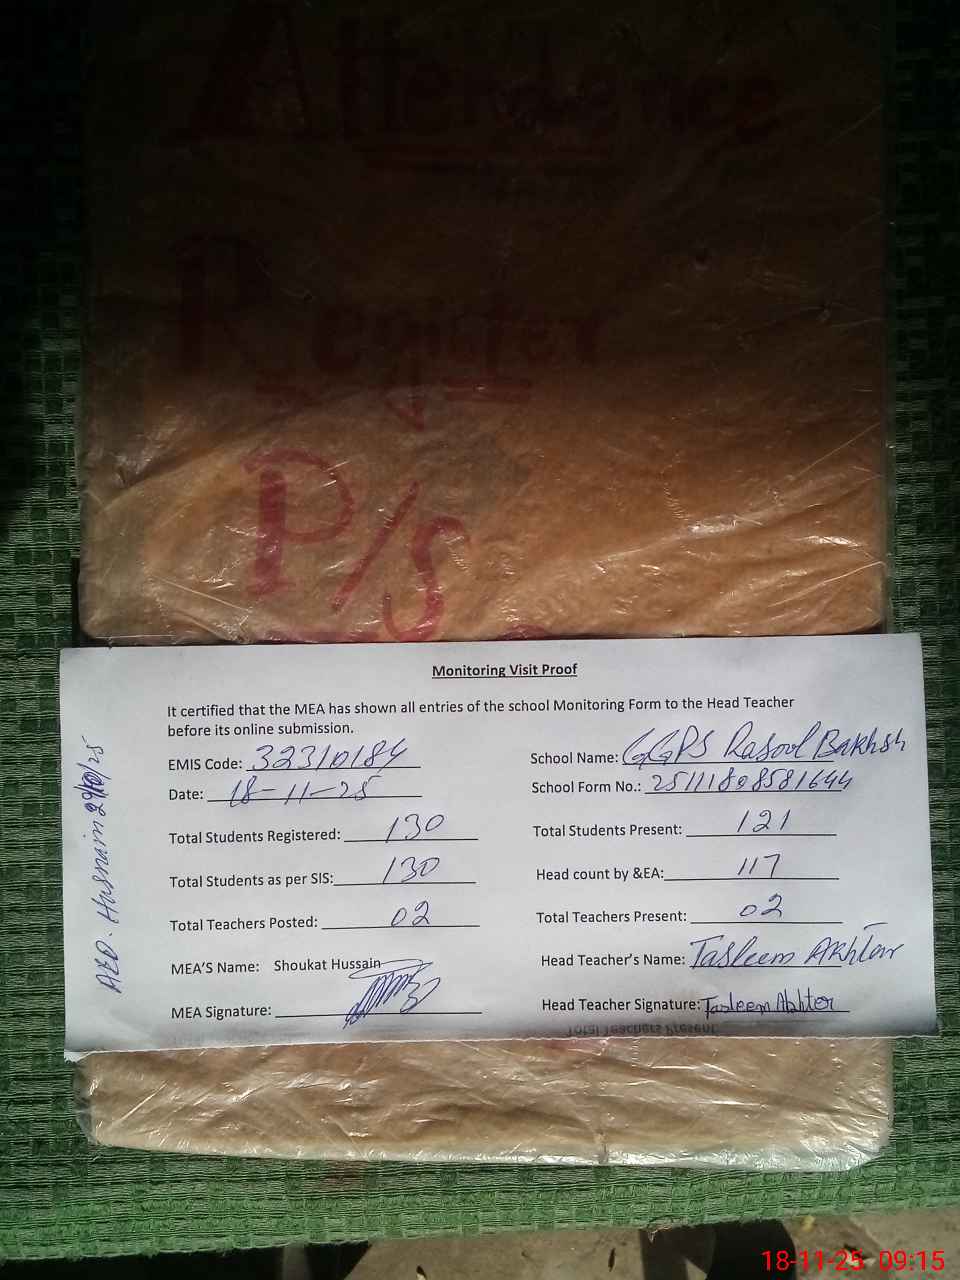 Attendence
Register
P/S
Monitoring Visit Proof
It certified that the MEA has shown all entries of the school Monitoring Form to the Head Teacher
before its online submission.
EMIS Code: 32310184 School Name: GGPS Rasool Bakhsh
Date: 18-11-25 School Form No.: 251118
Total Students Registered: 130 Total Students Present: 121
Total Students as per SIS: 130 Head count by &EA: 117
Total Teachers Posted: 02 Total Teachers Present: 02
MEA'S Name: Shoukat Hussain Head Teacher's Name: Tasleem Akhtar
MEA Signature: Head Teacher Signature: Tasleem Akhter
Total Teachers Present
AEO. Husnain
18-11-25 09:15